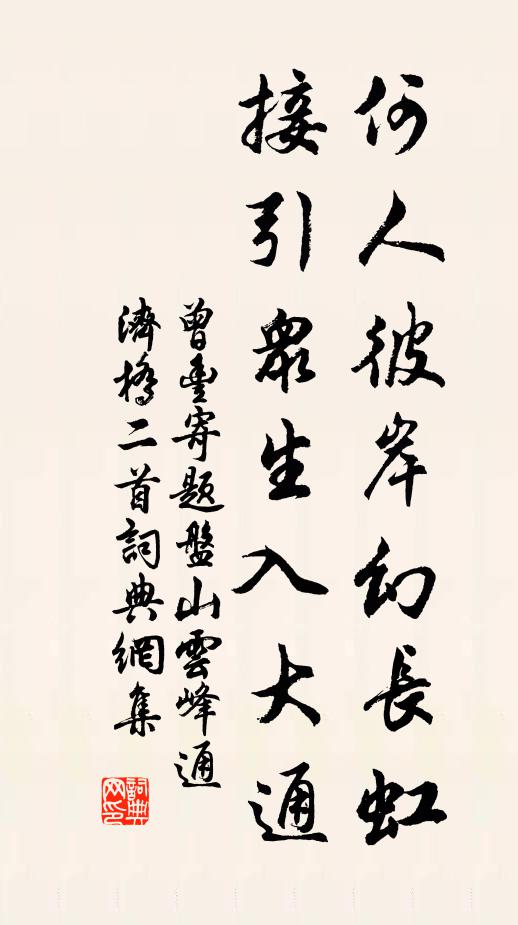 何人彼岸幻長虹
接引眾生入大通
曾豐寄題盤山雲峰通
濟橋二首詞典網集
詞典
网印